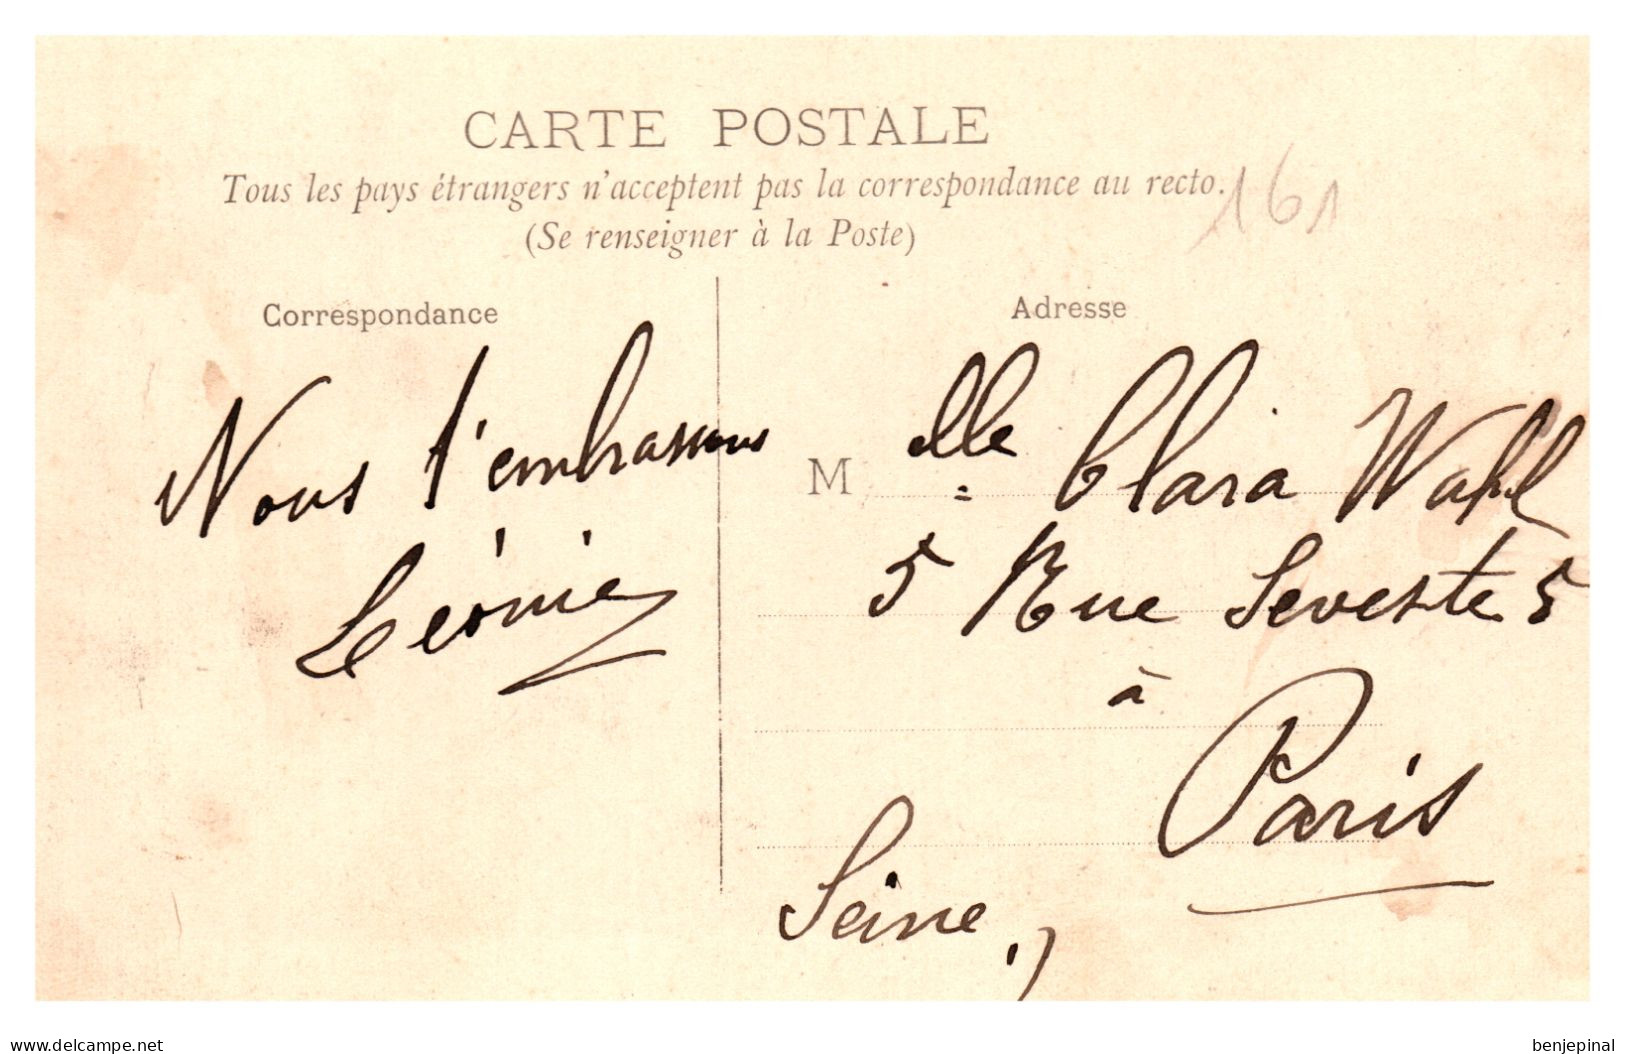 CARTE POSTALE
Tous les pays étrangers n'acceptent pas la correspondance au recto.
161
(Se renseigner à la Poste)
Correspondance
Nous t'embrassons
Léonie
Adresse
Melle Clara Wahl
5 Rue Seveste 5
à
Paris
Seine
www.delcampe.net
benjepinal